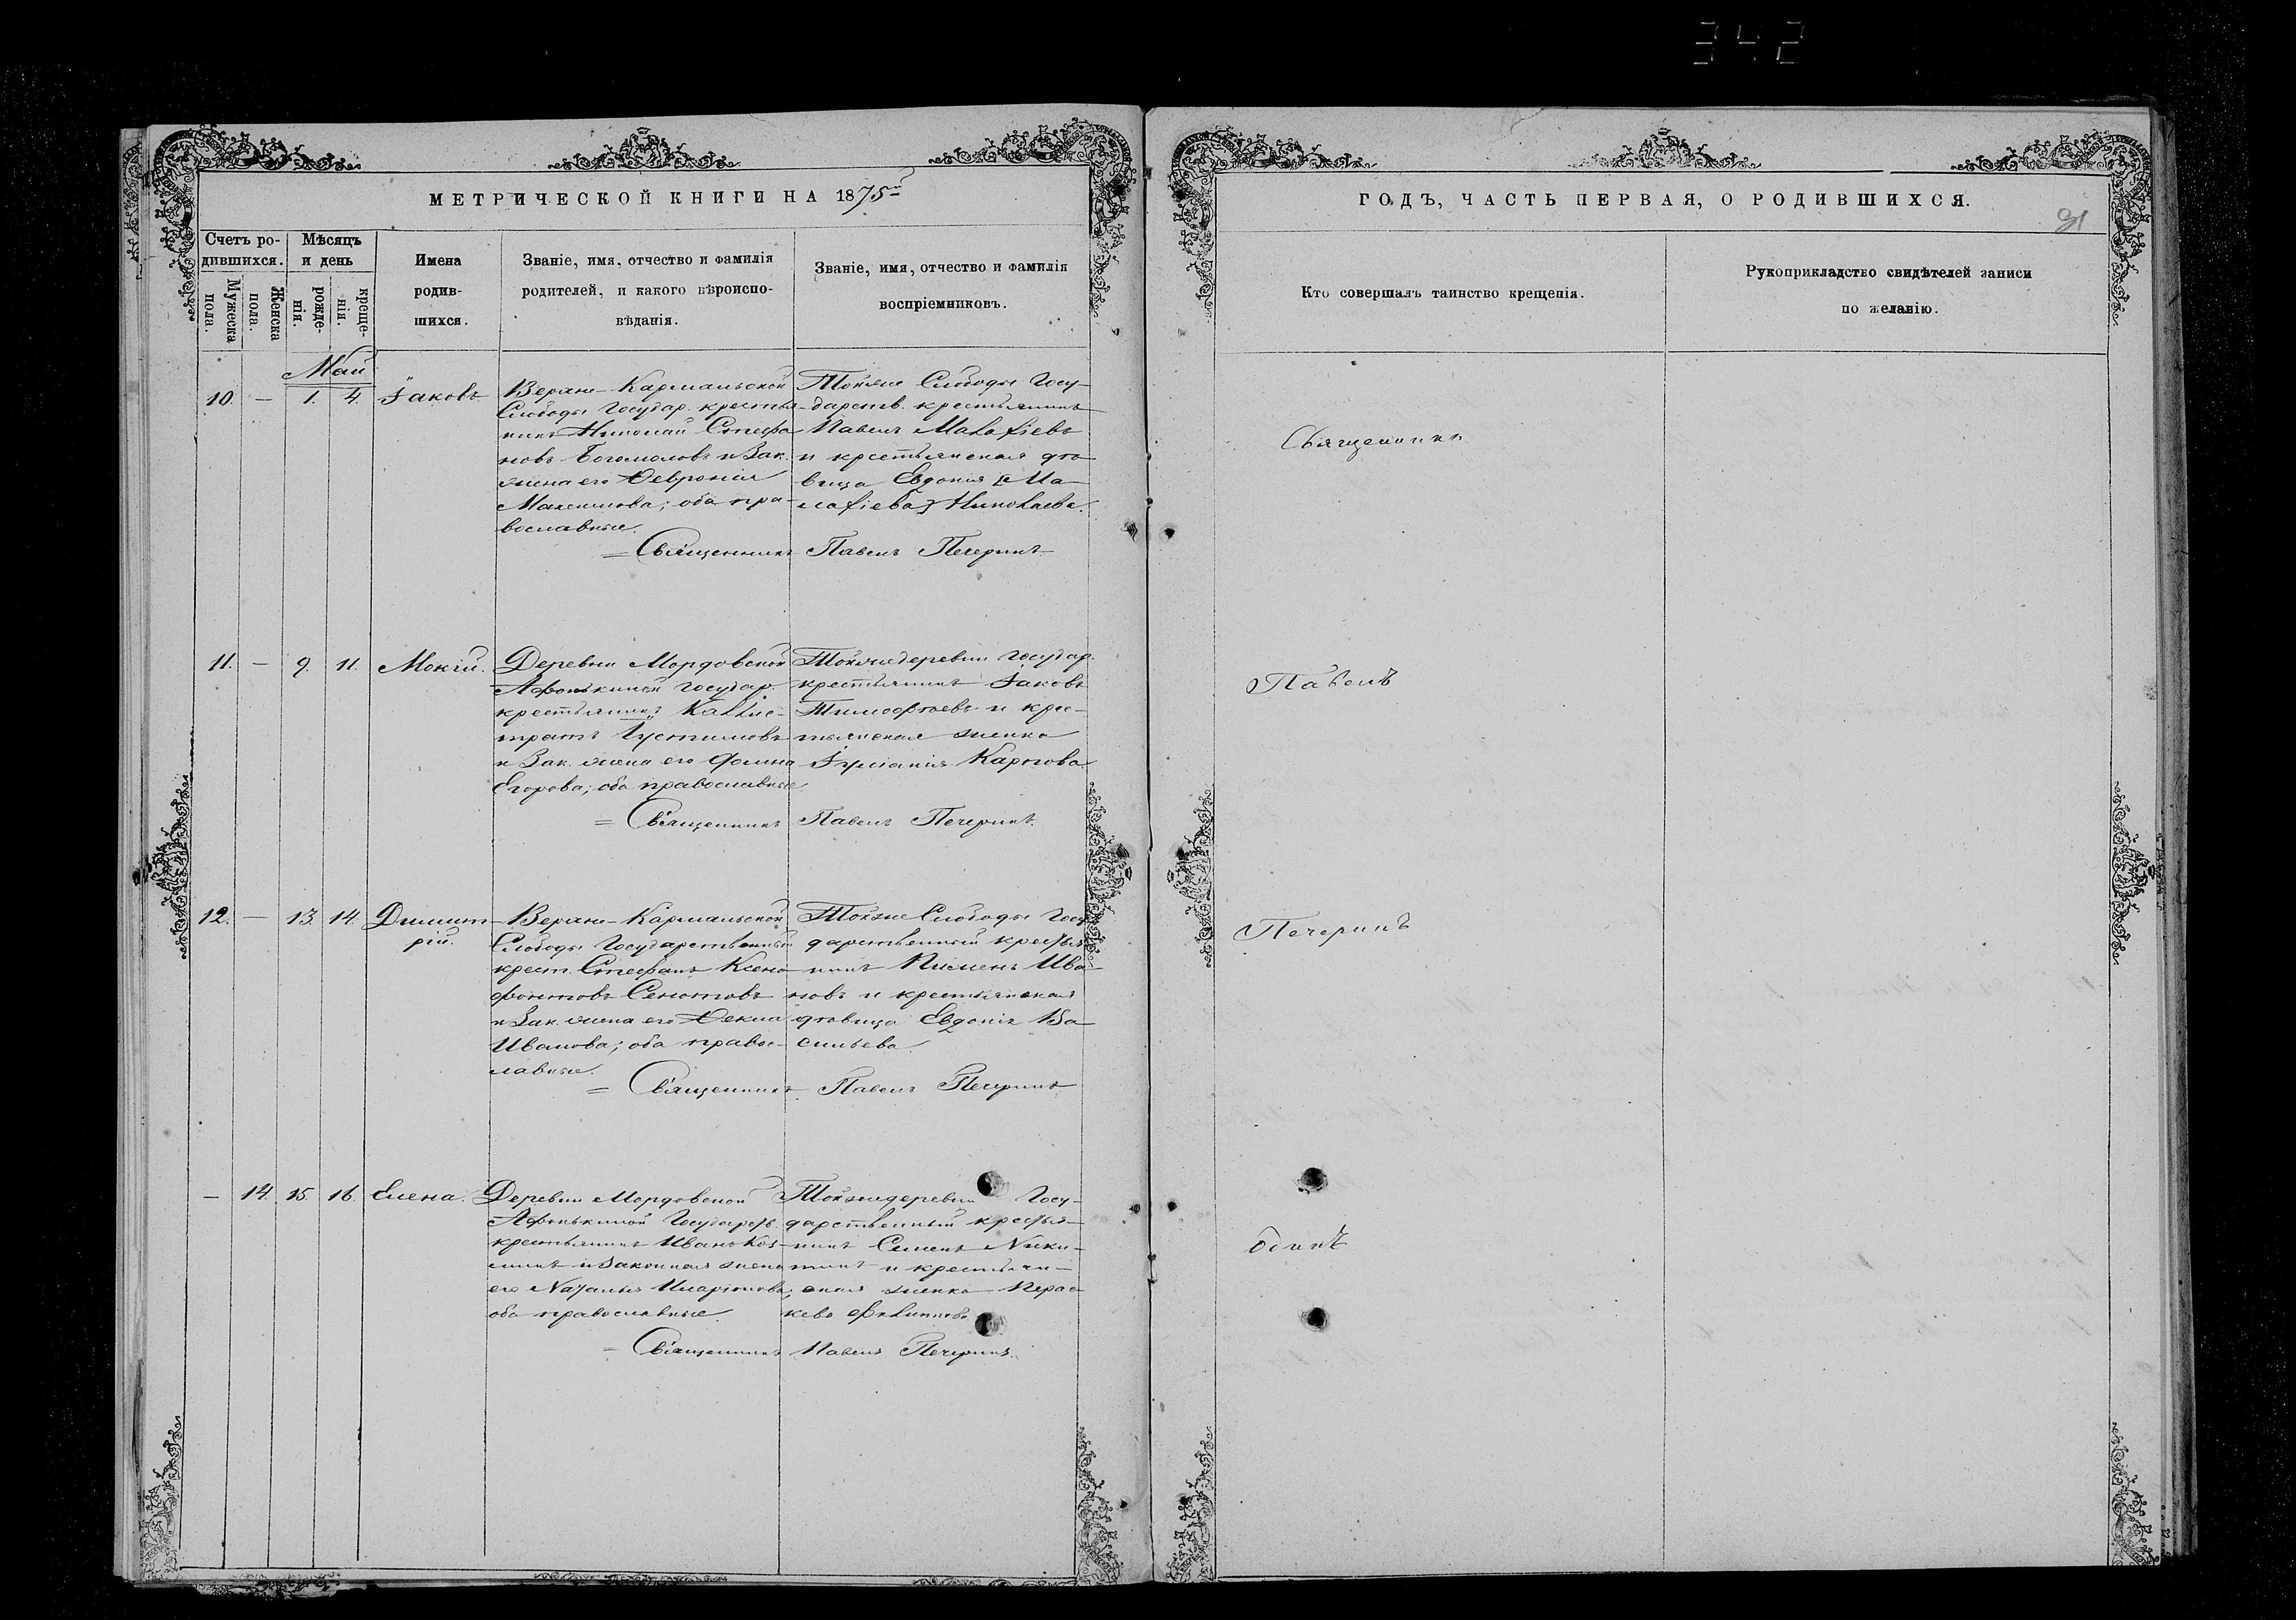 342
МЕТРИЧЕСКОЙ КНИГИ НА 1875й
ГОДЪ, ЧАСТЬ ПЕРВАЯ, О РОДИВШИХСЯ.
31
Счетъ ро-
дившихся.
Мужеска пола.
Женска пола.
Мѣсяцъ
и день
рожде-
нія.
креще-
нія.
Имена
родив-
шихся.
Званіе, имя, отчество и фамилія
родителей, и какого вѣроиспо-
вѣданія.
Званіе, имя, отчество и фамилія
воспріемниковъ.
Кто совершалъ таинство крещенія.
Рукоприкладство свидѣтелей записи
по желанію.
Май
10. — 1. 4. Іаковъ
Верхне-Кармальской
Слободы Государ. крестья-
нинъ Николай Стефа
новъ Богомоловъ и Зак.
жена его Ѳевронія
Максимова; оба пра-
вославные.
Тойже Слободы Госу-
дарств. крестьянинъ
Павелъ Малафіевъ
и крестьянская дѣ-
вица Евдокія
Николаева.
=Священникъ Павелъ Печеринъ
11. — 9. 11. Мокій.
Деревни Мордовской
Афонькиной Государ.
крестьянинъ Каллис-
тратъ Іустимовъ
и Зак. жена его Фаина
Егорова; оба православные.
Тойжедеревни Государ.
крестьянинъ Іаковъ
Тимофѣевъ и крес-
тьянская женка
Іуліанія Карпова.
= Священникъ Павелъ Печеринъ.
12. — 13. 14. Димит-
рій.
Верхне-Кармальской
Слободы Государственный
крест. Стефанъ Ксено
фонтовъ Сенотовъ
и Зак. жена его Ѳекла
Иванова; оба правос-
лавные.
Тойже Слободы Госу
дарственный крестья
нинъ Пименъ Ива
новъ и крестьянская
дѣвица Евдокія Ва
сильева.
= Священникъ Павелъ Печеринъ
— 14. 15. 16. Елена.
Деревни Мордовской
Афонькиной Государств.
крестьянинъ Иванъ Коз-
минъ и Законная жена
его Наталья Иларіонова;
оба православные.
Тойжедеревни Госу-
дарственный крестья-
нинъ Сименъ Ники-
тинъ и крестьян-
ская женка Парас
кева Филиппова
= Священникъ Павелъ Печеринъ.
Священникъ
Павелъ
Печеринъ
одинъ